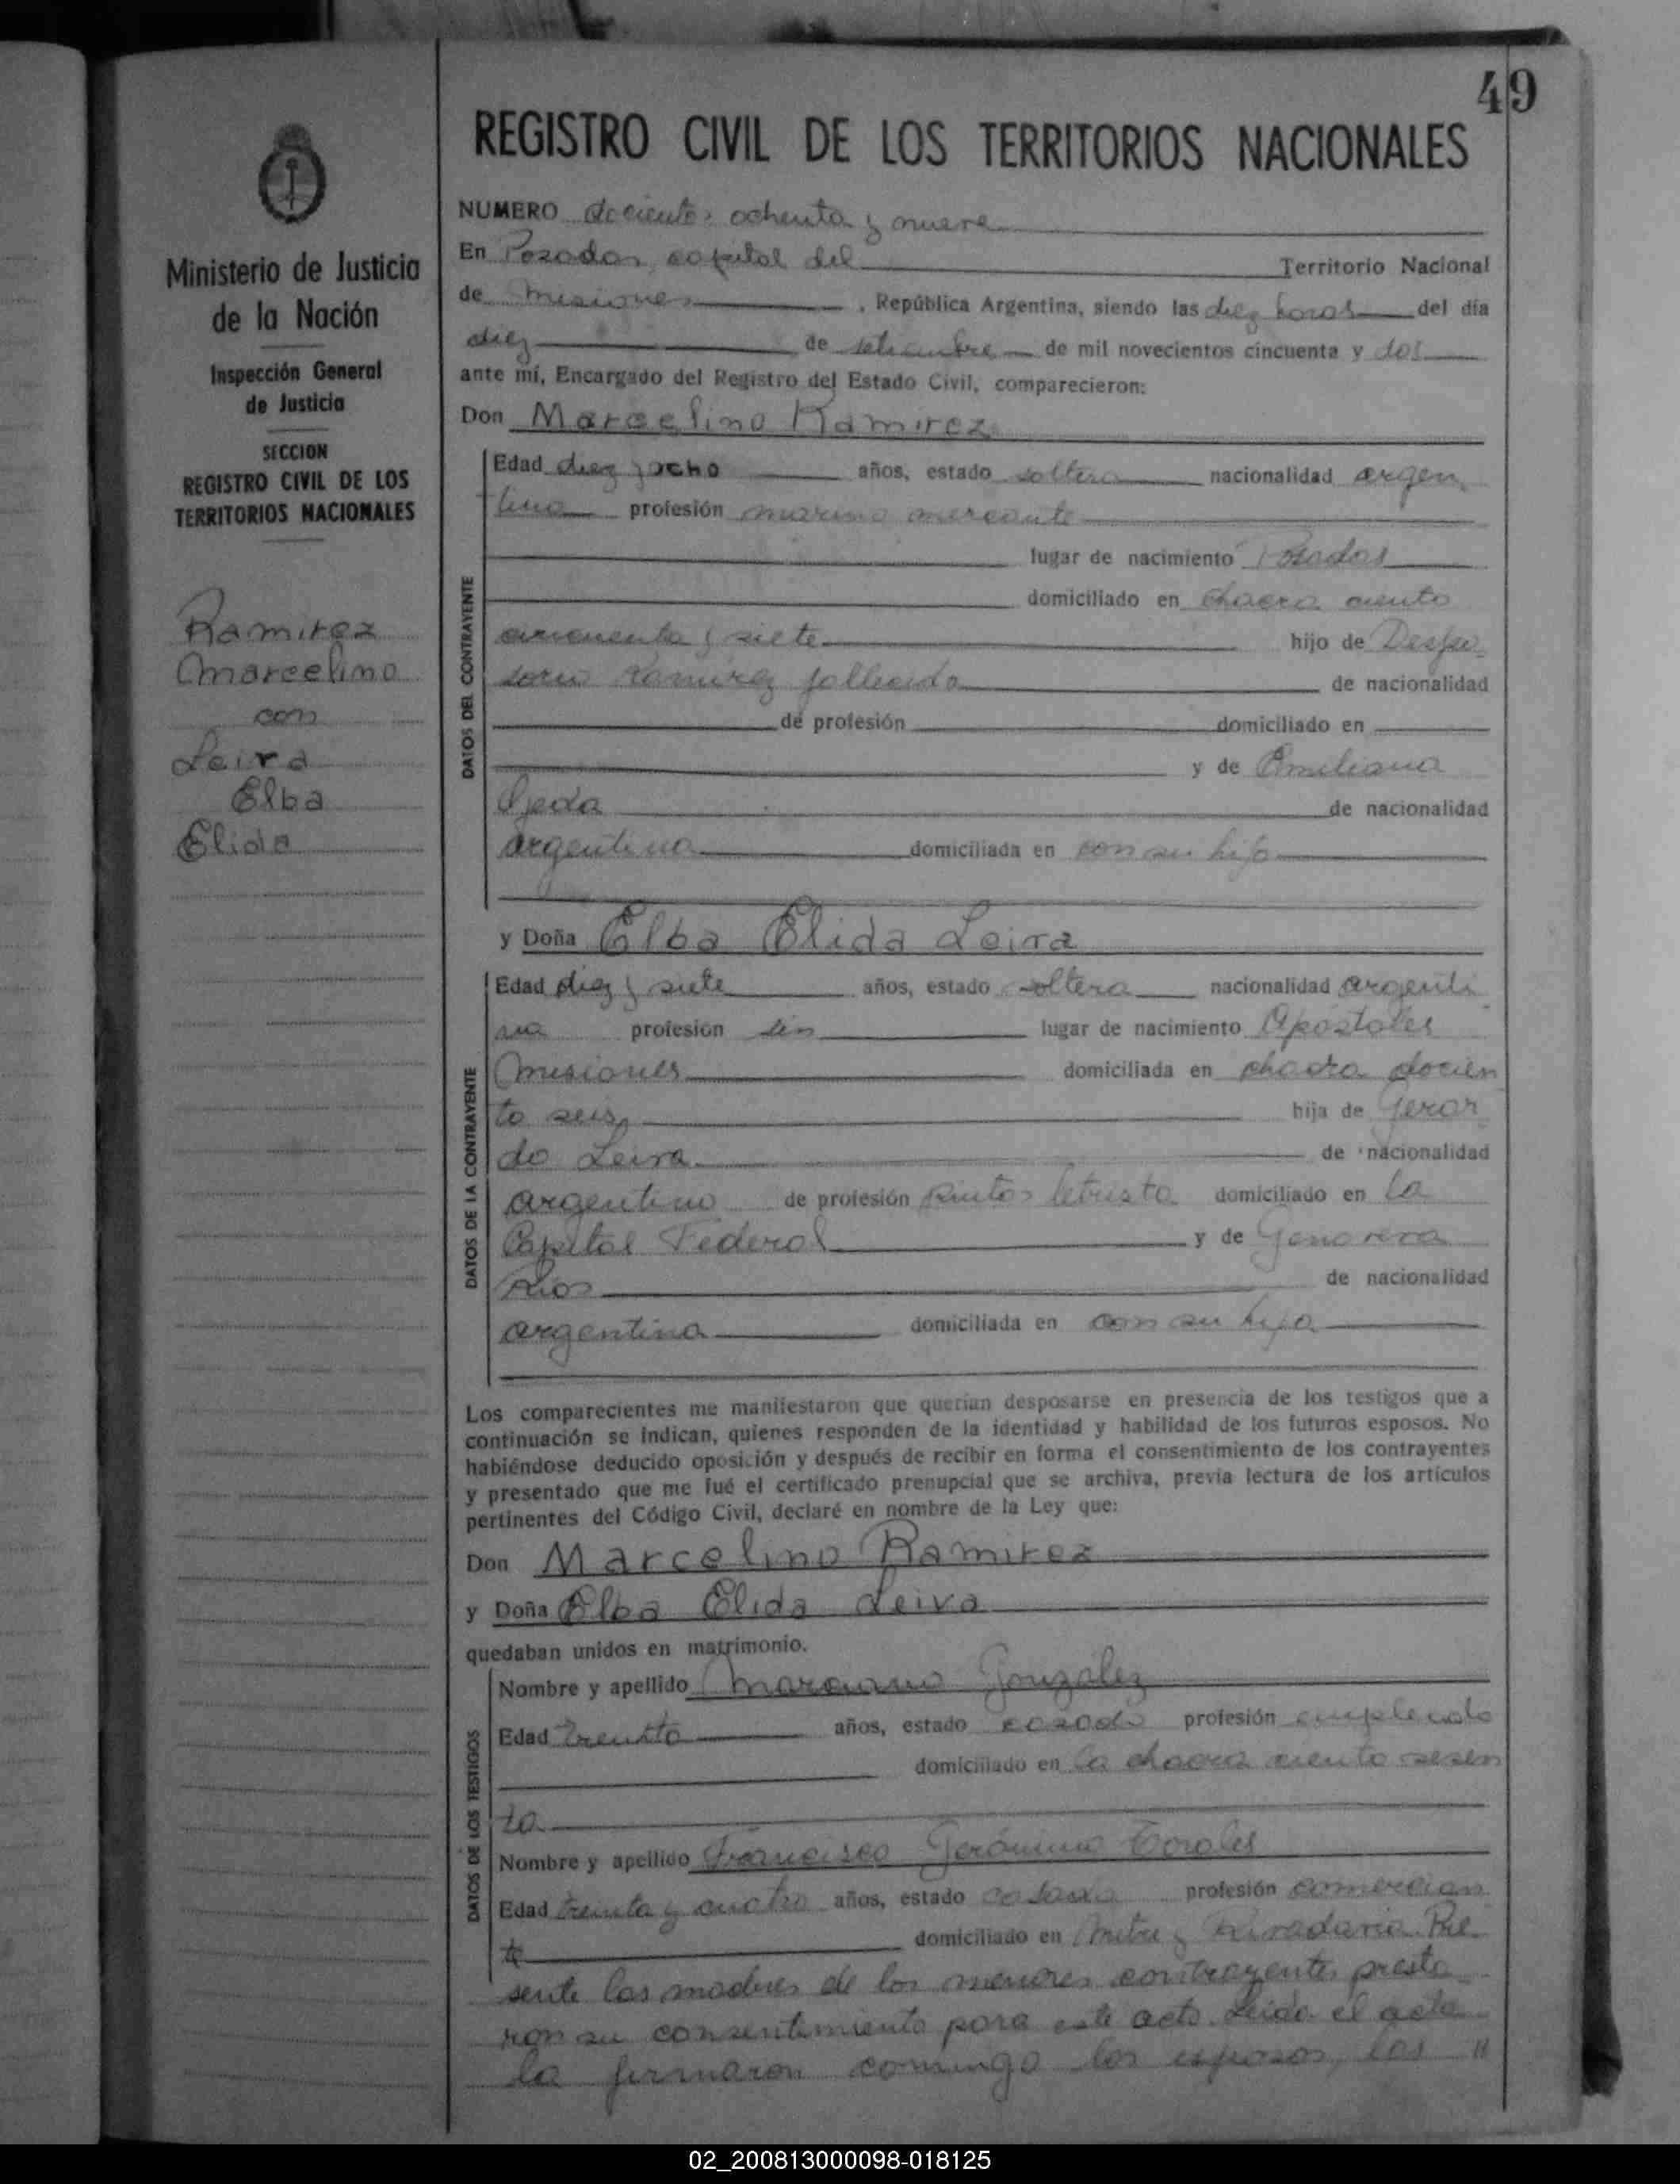 49
REGISTRO CIVIL DE LOS TERRITORIOS NACIONALES
Ministerio de Justicia
de la Nación
Inspección General
de Justicia
SECCION
REGISTRO CIVIL DE LOS
TERRITORIOS NACIONALES
Ramirez
Marcelino
con
Leiva
Elba
Elida
NUMERO docientos ochenta y nueve
En Posadas, capital del Territorio Nacional
de Misiones, República Argentina, siendo las diez horas del día
diez de setiembre de mil novecientos cincuenta y dos
ante mí, Encargado del Registro del Estado Civil, comparecieron:
Don Marcelino Ramirez
DATOS DEL CONTRAYENTE
Edad diez y ocho años, estado soltero nacionalidad argen
tino profesión marino mercante
lugar de nacimiento Posadas
domiciliado en chacra ciento
cincuenta y siete hijo de Despo
sorio Ramirez fallecido de nacionalidad
de profesión domiciliado en
y de Emiliana
Ojeda de nacionalidad
argentina domiciliada en con su hijo
y Doña Elba Elida Leiva
DATOS DE LA CONTRAYENTE
Edad diez y siete años, estado soltera nacionalidad argenti
na profesión sin lugar de nacimiento Apóstoles
Misiones domiciliada en chacra docien
to seis, hija de Gerar
do Leiva de nacionalidad
argentino de profesión pintor letrista domiciliado en la
Capital Federal y de Genoveva
Rios de nacionalidad
argentina domiciliada en con su hija
Los comparecientes me manifestaron que querían desposarse en presencia de los testigos que a
continuación se indican, quienes responden de la identidad y habilidad de los futuros esposos. No
habiéndose deducido oposición y después de recibir en forma el consentimiento de los contrayentes
y presentado que me fué el certificado prenupcial que se archiva, previa lectura de los artículos
pertinentes del Código Civil, declaré en nombre de la Ley que:
Don Marcelino Ramirez
y Doña Elba Elida Leiva
quedaban unidos en matrimonio.
DATOS DE LOS TESTIGOS
Nombre y apellido Marciano González
Edad treinta años, estado casado profesión empleado
domiciliado en la chacra ciento sesen
ta
Nombre y apellido Francisco Gerónimo Corales
Edad treinta y cuatro años, estado casado profesión comercian
te domiciliado en Mitre y Rivadavia. Pre
sente las madres de los menores contrayentes presta
ron su consentimiento para este acto. Leida el acta
la firmaron conmigo los esposos, las "
02_200813000098-018125